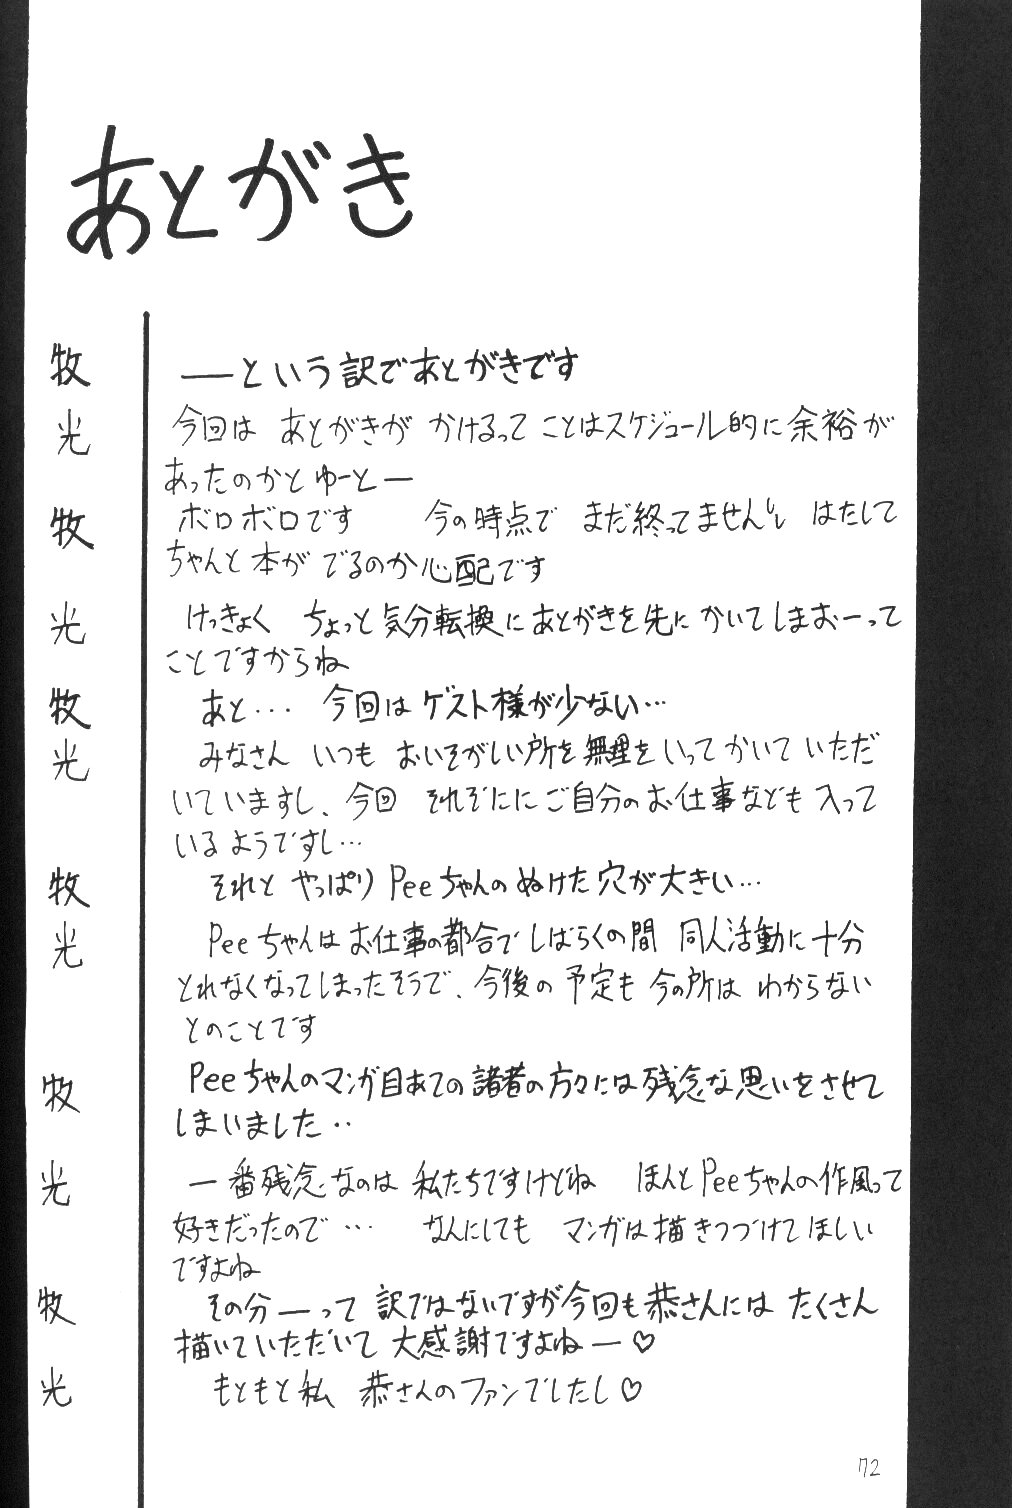 あとがき
牧 ──という訳であとがきです
光 今回は あとがきが かけるって ことはスケジュール的に余裕が
あったのかと ゆーとー
牧 ボロボロです 今の時点で まだ終ってません はたして
ちゃんと本が でるのか心配です
光 けっきょく ちょっと気分転換にあとがきを先に かいてしまおーって
ことですからね
牧 あと... 今回はゲスト様が少ない...
光 みなさん いつも おいそがしい所を無理をいってかいていただ
いていますし、今回 それぞれにご自分のお仕事なども入って
いるようですし...
牧 それと やっぱりPeeちゃんのぬけた穴が大きい...
光 Peeちゃんはお仕事の都合でしばらくの間 同人活動に十分
とれなくなってしまったそうで、今後の予定も今の所は わからない
とのことです
牧 Peeちゃんのマンガ目あての諸者の方々には残念な思いをさせて
しまいました‥
光 一番残念なのは 私たちですけどね ほんとPeeちゃんの作風って
好きだったので... なんにしても マンガは描きつづけてほしい
ですよね
牧 その分ーって 訳ではないですが今回も恭さんには たくさん
描いていただいて 大感謝ですよねー♡
光 もともと私 恭さんのファンでしたし♡
72